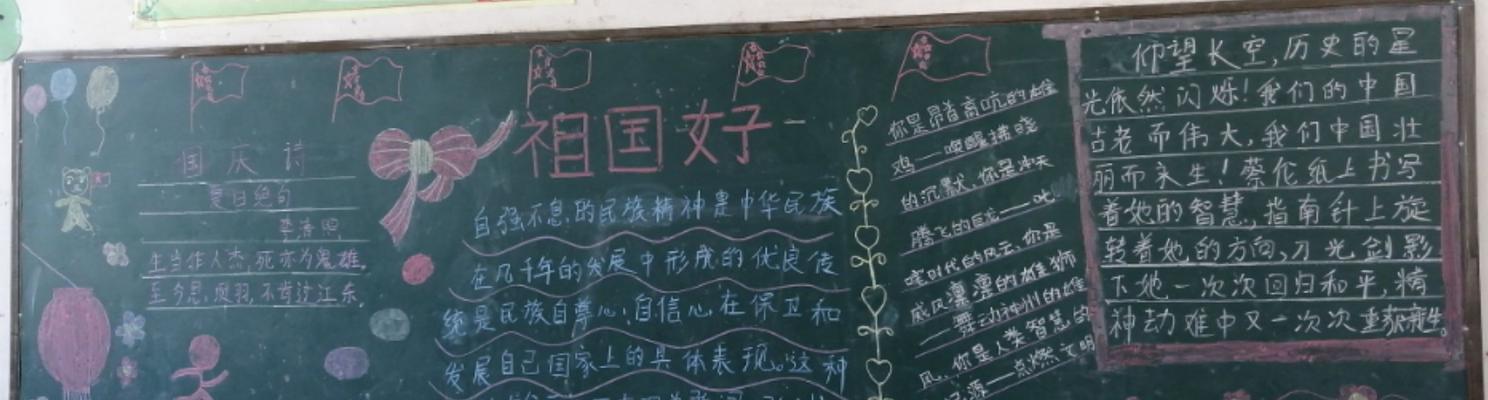 祖国好
国庆诗
夏日绝句
李清照
生当作人杰,死亦为鬼雄。
至今思项羽,不肯过江东。
自强不息的民族精神是中华民族
在几千年的发展中形成的优良传
统是民族自尊心,自信心,在保卫和
发展自己国家上的具体表现。这种
你是昂首高吭的雄
鸡——唤醒拂晓
的沉默,你是冲天
腾飞的巨龙——叱
咤时代的风云,你是
威风凛凛的雄狮
——舞动神州的雄
风,你是人类智慧的
源——点燃文明
仰望长空,历史的星
光依然闪烁!我们的中国
古老而伟大,我们中国壮
丽而永生!蔡伦纸上书写
着她的智慧,指南针上旋
转着她的方向,刀光剑影
下她一次次回归和平,精
神劫难中又一次次重获新生。